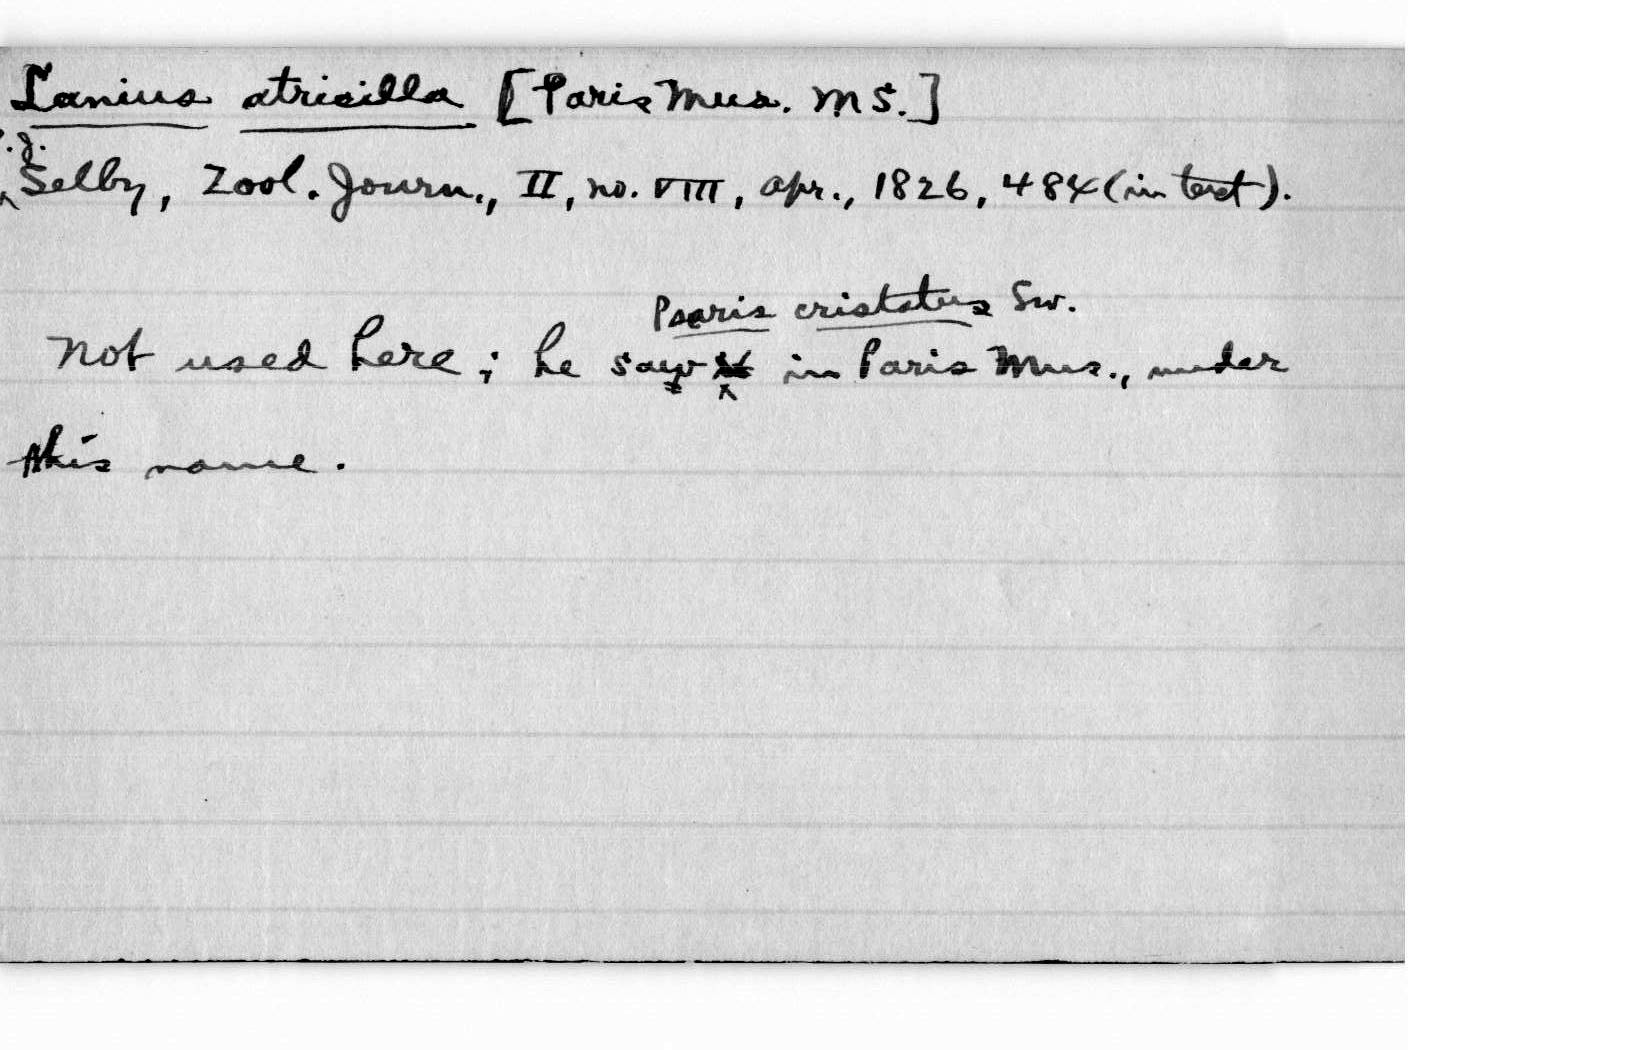 Lanius atricilla [Paris Mus. MS.]
P.J.
Selby, Zool. Journ., II, no. VIII, Apr., 1826, 484 (in text).
Psaris cristatus Sw.
Not used here; he saw in Paris Mus., under
this name.